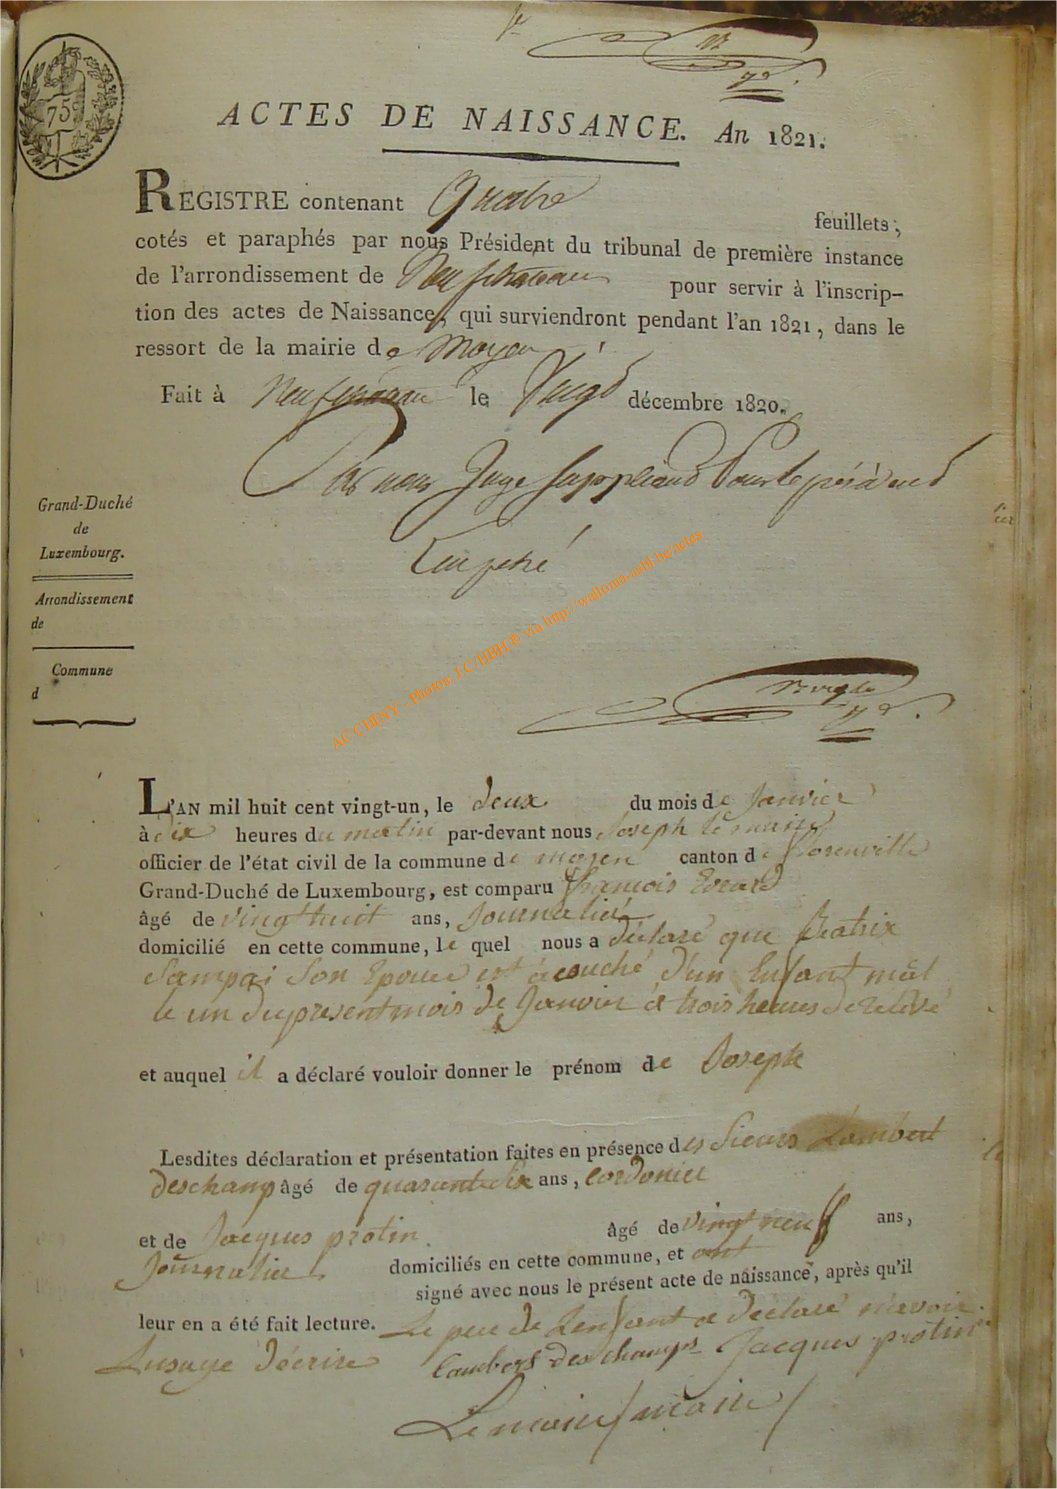 75
ACTES DE NAISSANCE. An 1821.
REGISTRE contenant quatre feuillets,
cotés et paraphés par nous Président du tribunal de première instance
de l'arrondissement de Neufchateau pour servir à l'inscrip-
tion des actes de Naissance, qui surviendront pendant l'an 1821, dans le
ressort de la mairie de Moyen
Fait à Neufchateau le Vingt décembre 1820.
Par nous Juge Suppléant Pour le président
Empeché
Grand-Duché
de
Luxembourg.
Arrondissement
de
Commune
d
AC CHINY - Photos J.C/HBH.® via http://wallonia-asbl.be/actes
L'AN mil huit cent vingt-un, le deux du mois de Janvier
à dix heures du matin par-devant nous Joseph le maire
officier de l'état civil de la commune de moyen canton de florenville
Grand-Duché de Luxembourg, est comparu françois Evrard
âgé de vingt huit ans, Journalier
domicilié en cette commune, le quel nous a déclaré que Beatrix
Sampai Son Epouse est acouché d'un Enfant mâl
le un du present mois de Janvier à trois heures de relevé
et auquel il a déclaré vouloir donner le prénom de Joseph
Lesdites déclaration et présentation faites en présence des Sieurs Lambert
deschamp âgé de quarante six ans, Cordonier
et de Jacques protin âgé de vingt neuf ans,
Journalier domiciliés en cette commune, et ont
signé avec nous le présent acte de naissance, après qu'il
leur en a été fait lecture. Le pere de Lenfant a déclaré n'avoir
Lusage d'écrire Lambert deschamps Jacques protin
Lemaire maire